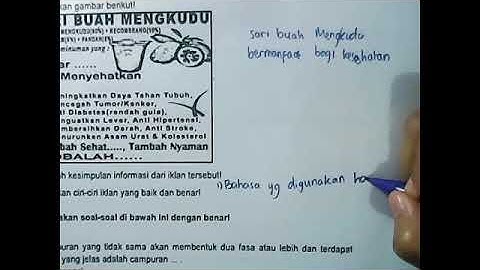 kan gambar berikut!
RI BUAH MENGKUDU
MENGKUDU(80%) + KECOMBRANG(10%)
+ PANDAN(5%)
minuman yang :
ar ......
Menyehatkan
eningkatkan Daya Tahan Tubuh,
encegah Tumor/Kanker,
ti Diabetes(rendah gula),
nguatkan Lever, Anti Hipertensi,
embersihkan Darah, Anti Stroke,
enurunkan Asam Urat & Kolesterol
bah Sehat...., Tambah Nyaman
OBALAH......
sari buah Mengkudu
bermanfaat bagi kesehatan
h kesimpulan informasi dari iklan tersebut!
kan ciri-ciri iklan yang baik dan benar!
1) Bahasa yg digunakan ha
akan soal-soal di bawah ini dengan benar!
puran yang tidak sama akan membentuk dua fasa atau lebih dan terdapat
yang jelas adalah campuran ... .